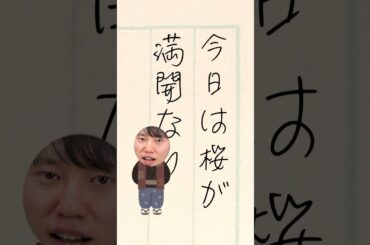 今日は桜が
満開なり